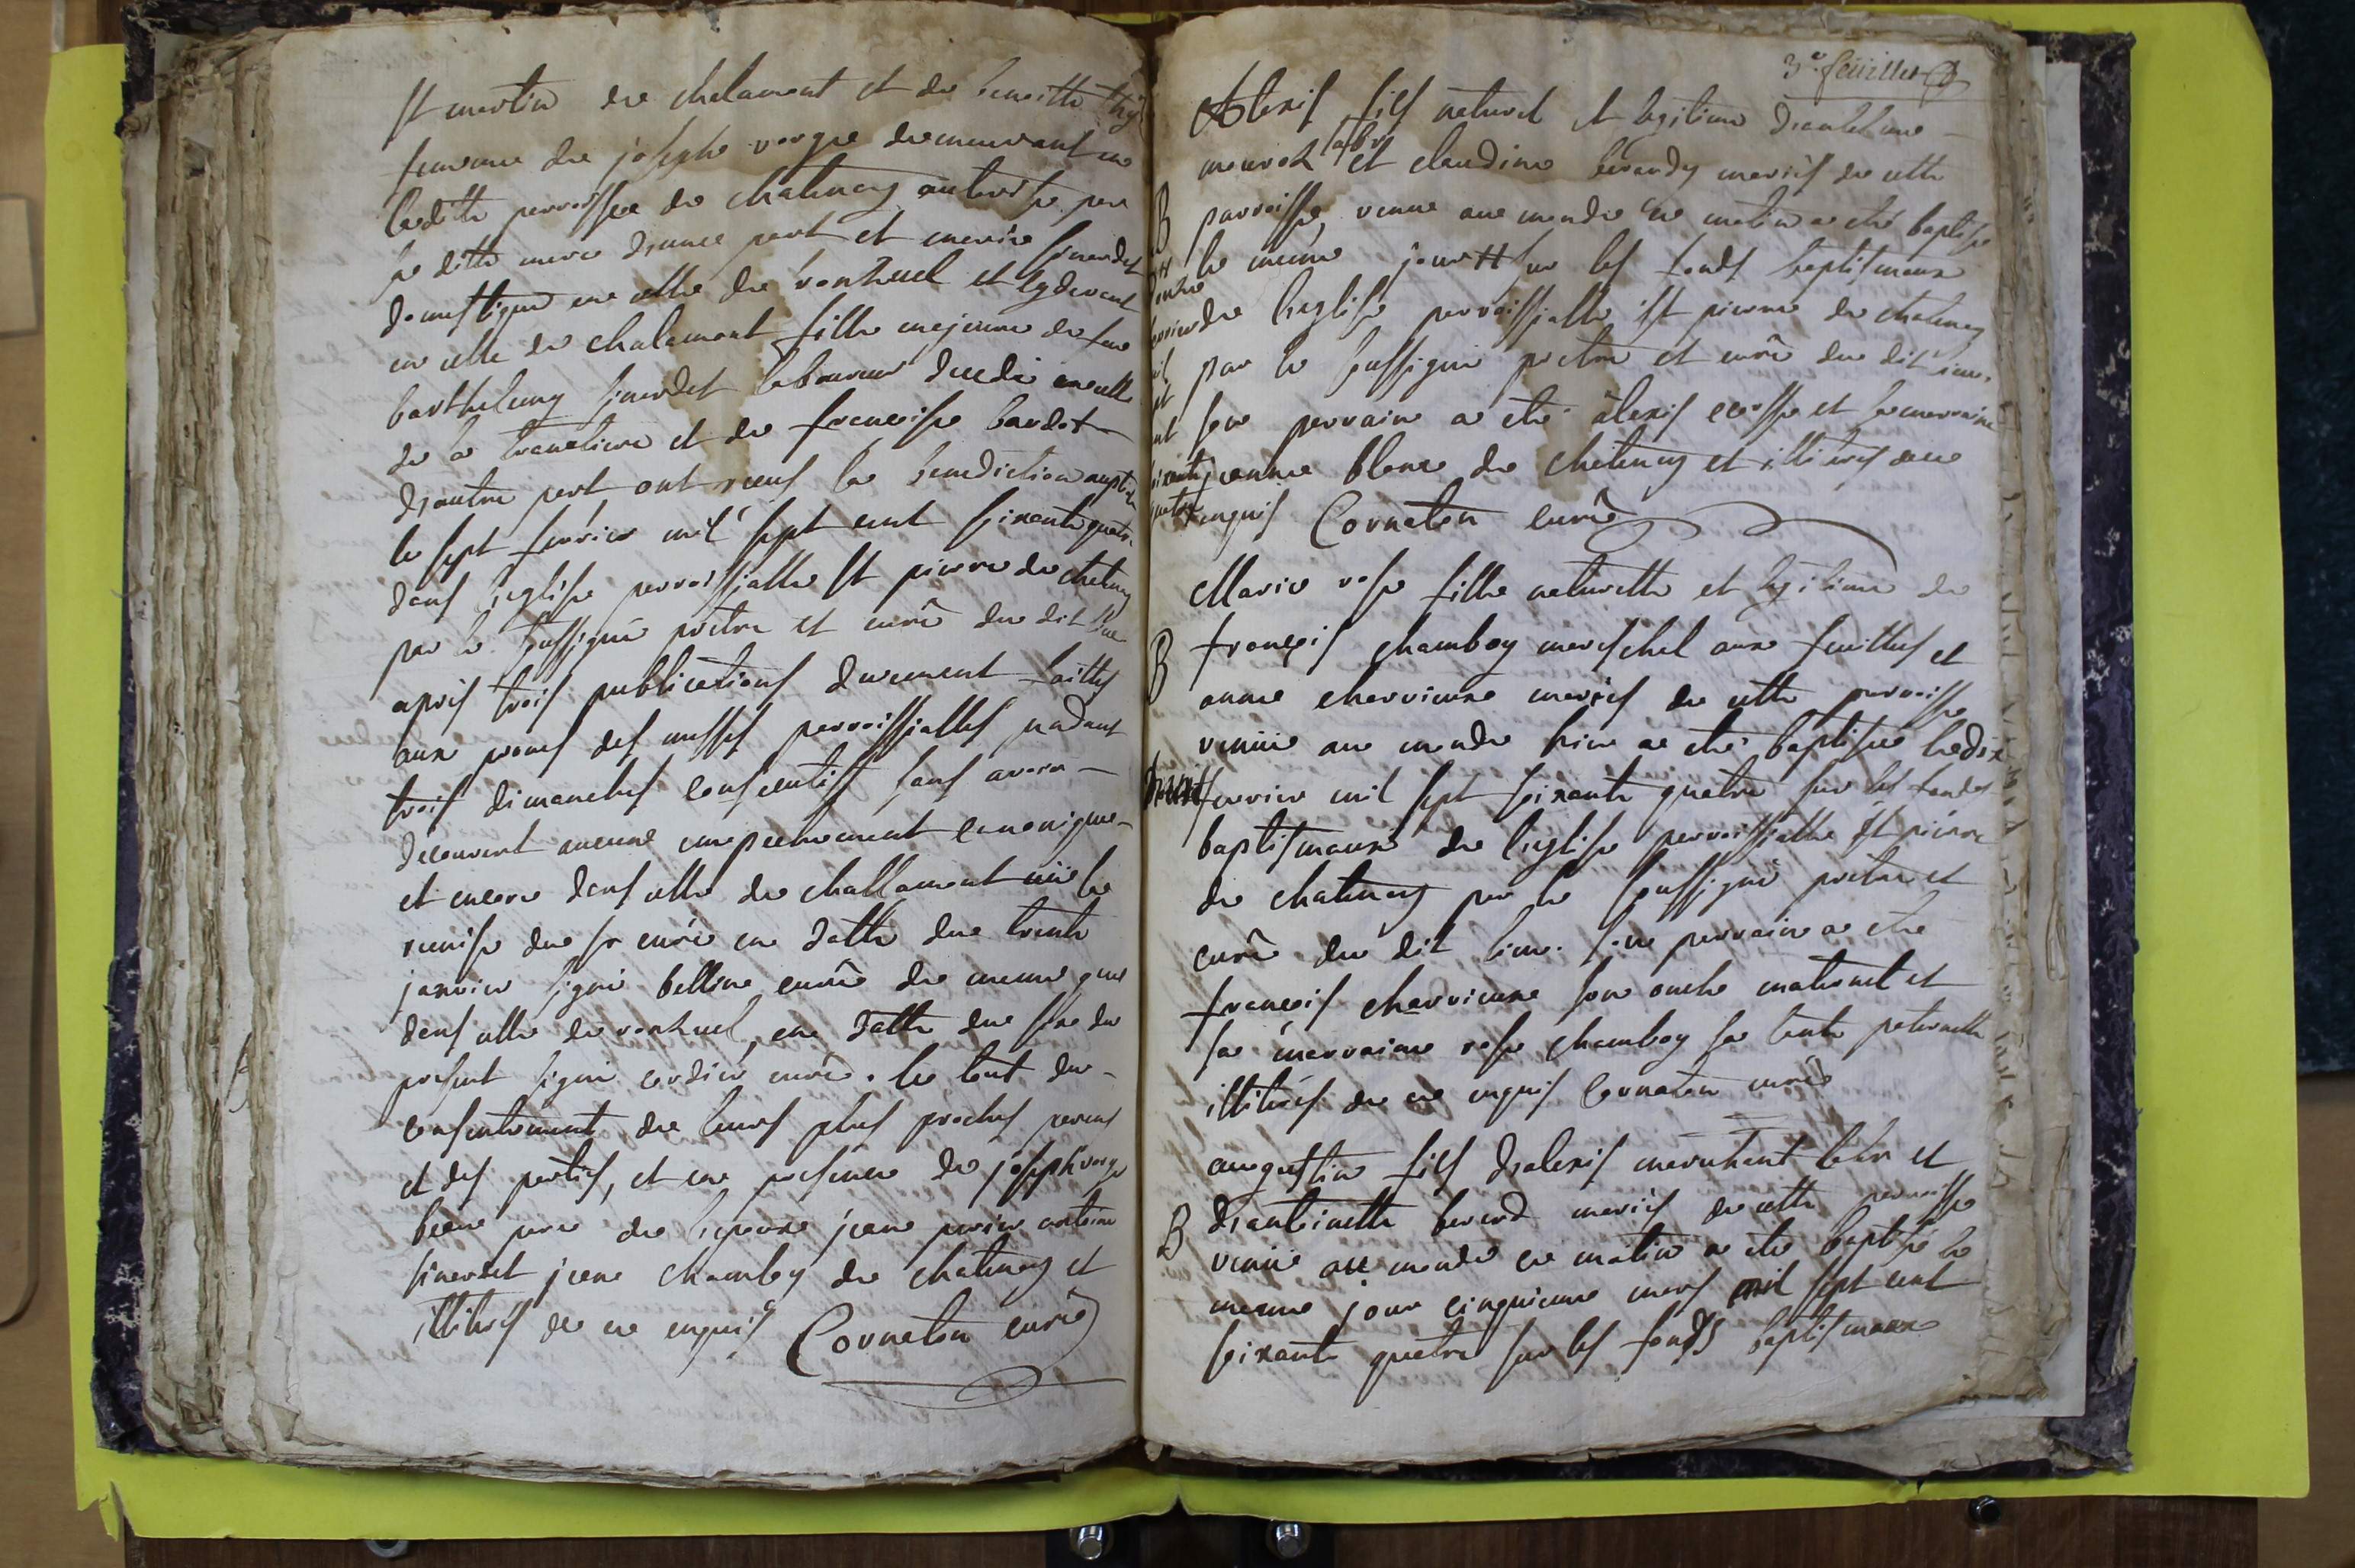 St martin de chalamont et de benoitte
femme de joseph vergne demeurant en
laditte parroisse de chatenay autorisé par
sa ditte mere d'une part et marie sinardet
domestique en celle de ronzuel et cydevant
en celle de chalamont fille majeure de feu
barthelemy sinardet laboureur decedé en celle
de la tranclière et de françoise bardet
d'autre part ont reçus la benediction nuptiale
le sept fevrier mil sept cent soixante quatre
dans l'eglise parroissialle St pierre de chatenay
par le soussigné prètre et curé du dit lieu
après trois publications duement faittes
aux prones des messes parroissialles pendant
trois dimanches consecutifs sans avoir
decouvert aucune empechement canonique
et encore dans celle de challamont vüe la
remise du sr curé en datte du trente
janvier signé belline curé de meme que
dans celle de ronzuel, en datte du six du
present signé cordier curé. le tout du
consentement de leurs plus proches parens
et des parties, et en presence de joseph vergne
beau pere de l'epoux jean perier antoine
sinardet jean chamboy de chatenay et
illiterés de ce enquis Cornaton curé
3e feüillet
Alexis fils naturel et legitime d'anthelme
labr
et claudine berardy mariés de cette
B parroisse, venu au monde ce matin a eté baptisé
le meme jour # sur les fonds baptismaux
de l'eglise parroissialle St pierre de chatenay
par le soussigné prètre et curé du dit lieu.
son parrain a eté alexis et sa marraine
jeanne blanc de chatenay et illiterés de ce
enquis Cornaton curé
# fevrier mil sept cent soixante quatre
Marie rose fille naturelle et legitime de
B françois chamboy mareschal aux feuilles et
anne charvieux mariés de cette parroisse
venüe au monde hier a eté baptisée le dix
huit fevrier mil sept soixante quatre sur les fonds
baptismaux de l'eglise parroissialle St pierre
de chatenay par le soussigné prètre et
curé du dit lieu. son parrain a eté
françois charvieux son oncle maternel et
sa marraine rose chamboy sa tante paternelle
illiterés de ce enquis Cornaton curé
augustin fils d'alexis marchant labr et
B d'antoinette berard mariés de cette parroisse
venüe au monde ce matin a eté baptisé le
meme jour cinquieme mars mil sept cent
soixante quatre sur les fonds baptismaux